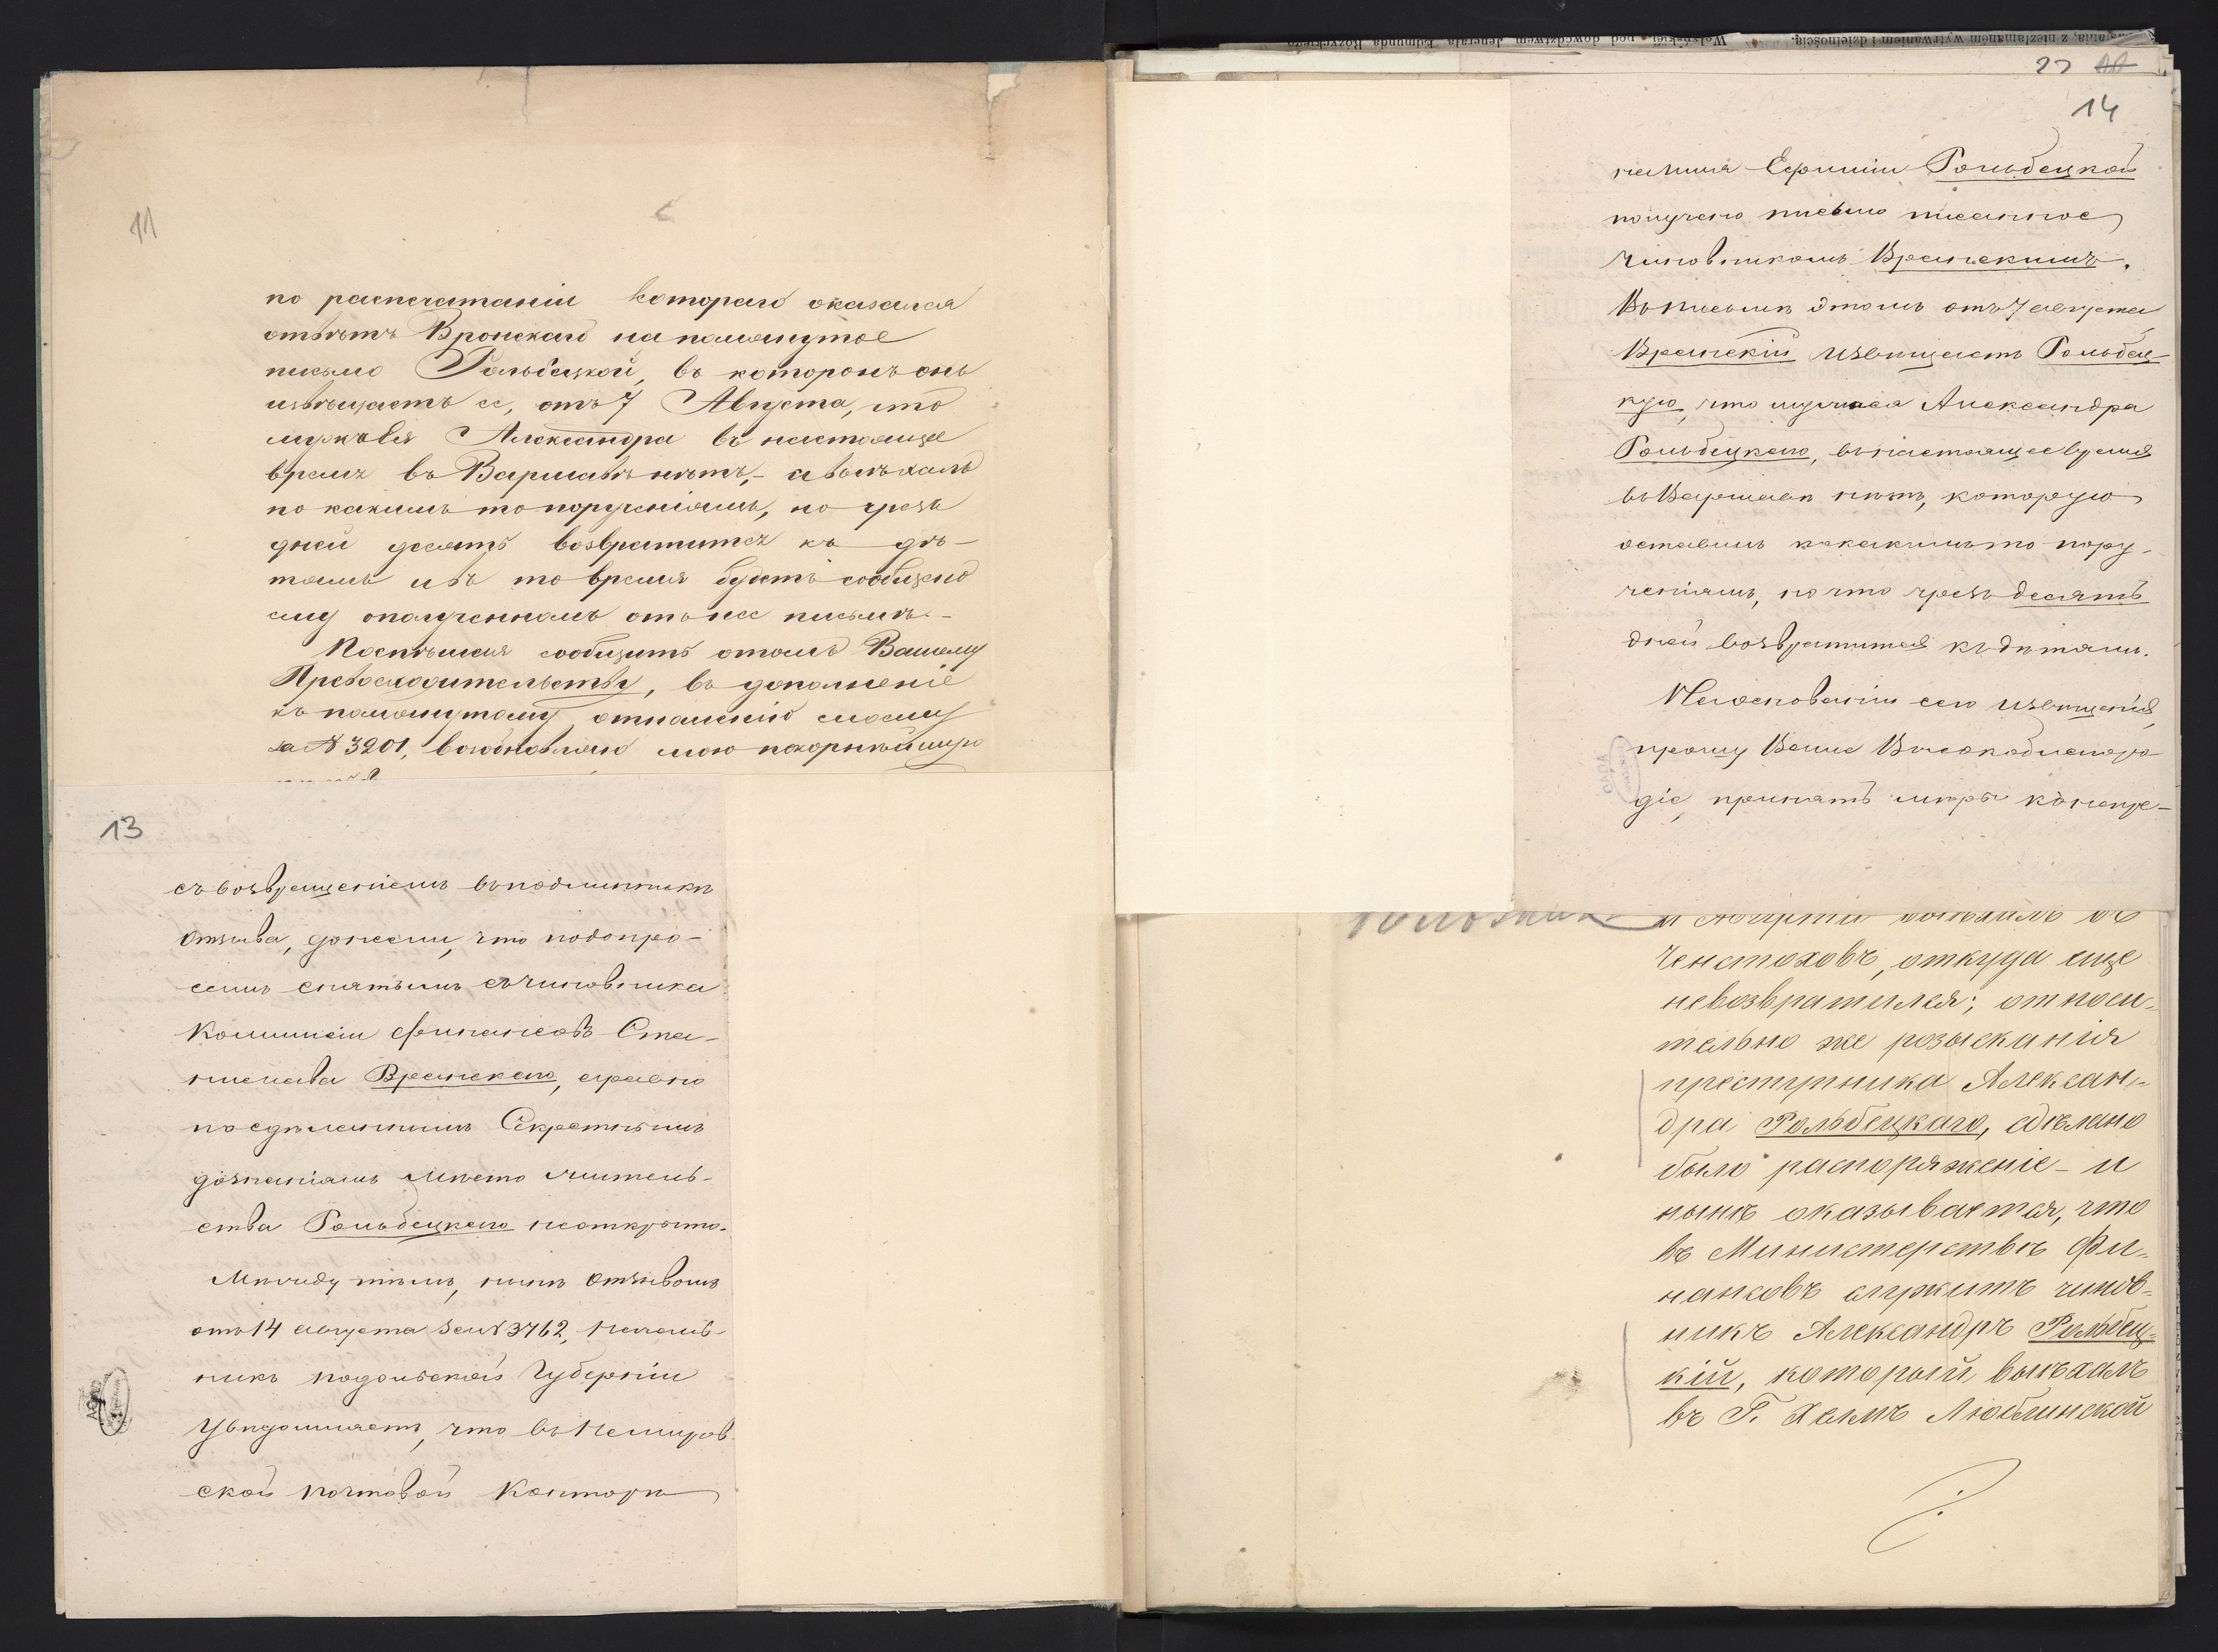 11
по распечатаніи котораго оказался
отвѣтъ Вронскаго на помянутое
письмо Рольбецкой, въ которомъ онъ
извѣщаетъ ее, отъ 7 Августа, что
мужа ея Александра въ настоящее
время въ Варшавѣ нѣтъ, - а выѣхалъ
по какимъ то порученіямъ, но чрезъ
дней десять возвратится къ дѣ-
тямъ и въ то время будетъ сообщено
ему о полученномъ отъ нее письмѣ.-
Поспѣшая сообщить о томъ Вашему
Превосходительству, въ дополненіе
къ помянутому отношенію моему
за № 3201, возобновляю мою покорнѣйшую
13
съ возвращеніемъ въ подлинникѣ
отзыва, донесли, что по допро-
самъ снятымъ съ чиновника
Коммисіи финансовъ Ста-
нислава Вранскаго, а равно
по сдѣланнымъ Секретнымъ
дознаніямъ мѣсто житель-
ства Рольбецкаго не открыто.
Между тѣмъ, нынѣ отзывомъ
отъ 14 августа за № 3762, Началь-
никъ Подольской Губерніи
увѣдомляетъ, что въ Немиров-
ской почтовой Конторѣ
22
14
на имя Ефиміи Рольбецкой
получено письмо писанное
чиновникомъ Вранскимъ.
Въ письмѣ этомъ отъ 7 августа
Вранскій извѣщаетъ Рольбец-
кую, что мужа ея Александра
Рольбецкаго, въ настоящее время
въ Варшавѣ нѣтъ, которую
оставилъ по какимъ то пору-
ченіямъ, но что чрезъ десять
дней возвратится къ дѣтямъ.
На основаніи сего извѣщенія,
прошу Ваше Высокоблагоро-
діе, принять мѣры
Августа выѣхалъ въ
Ченстоховъ, откуда еще
невозвратился; относи-
тельно же розысканія
преступника Алексан-
дра Рольбецкаго, сдѣлано
было распоряженіе - и
нынѣ оказывается, что
въ Министерствѣ Фи-
нансовъ служитъ чинов-
никъ Александръ Рольбец-
кій, который выѣхалъ
въ Г. Хелмъ Люблинской